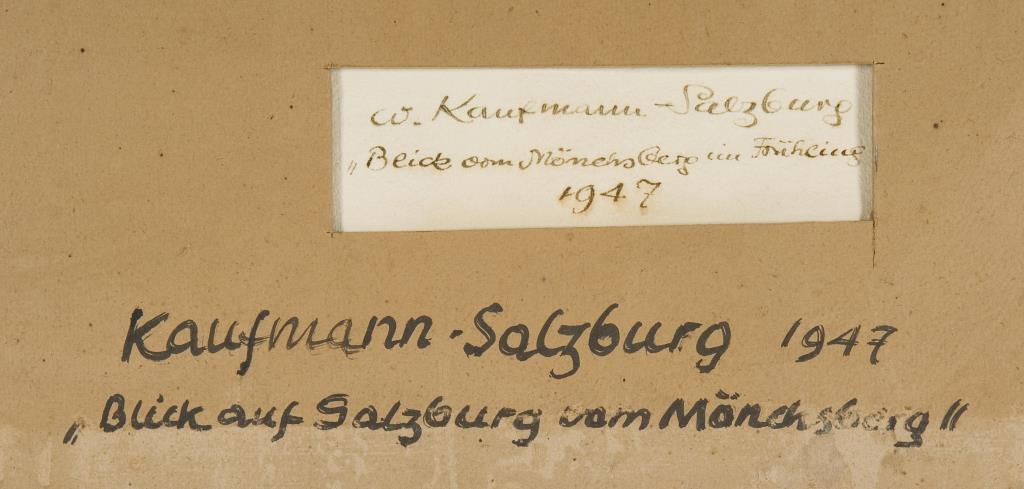 W. Kaufmann-Salzburg
„Blick vom Mönchsberg im Frühling
1947
Kaufmann-Salzburg 1947
„Blick auf Salzburg vom Mönchsberg"